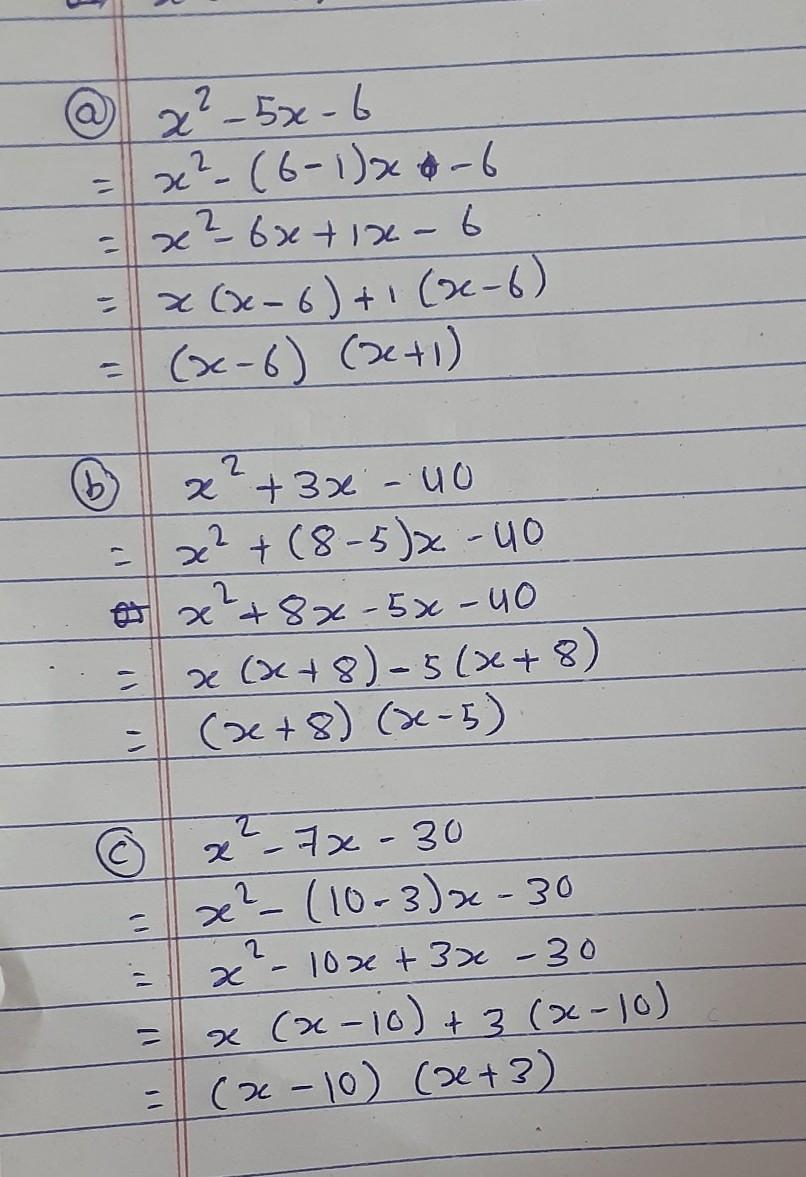 ⓐ x² - 5x - 6
= x² - (6-1)x - 6
= x² - 6x + 1x - 6
= x (x-6) + 1 (x-6)
= (x-6) (x+1)
ⓑ x² + 3x - 40
= x² + (8-5)x - 40
x² + 8x - 5x - 40
= x (x+8) - 5 (x+8)
= (x+8) (x-5)
ⓒ x² - 7x - 30
= x² - (10-3)x - 30
= x² - 10x + 3x - 30
= x (x-10) + 3 (x-10)
= (x-10) (x+3)